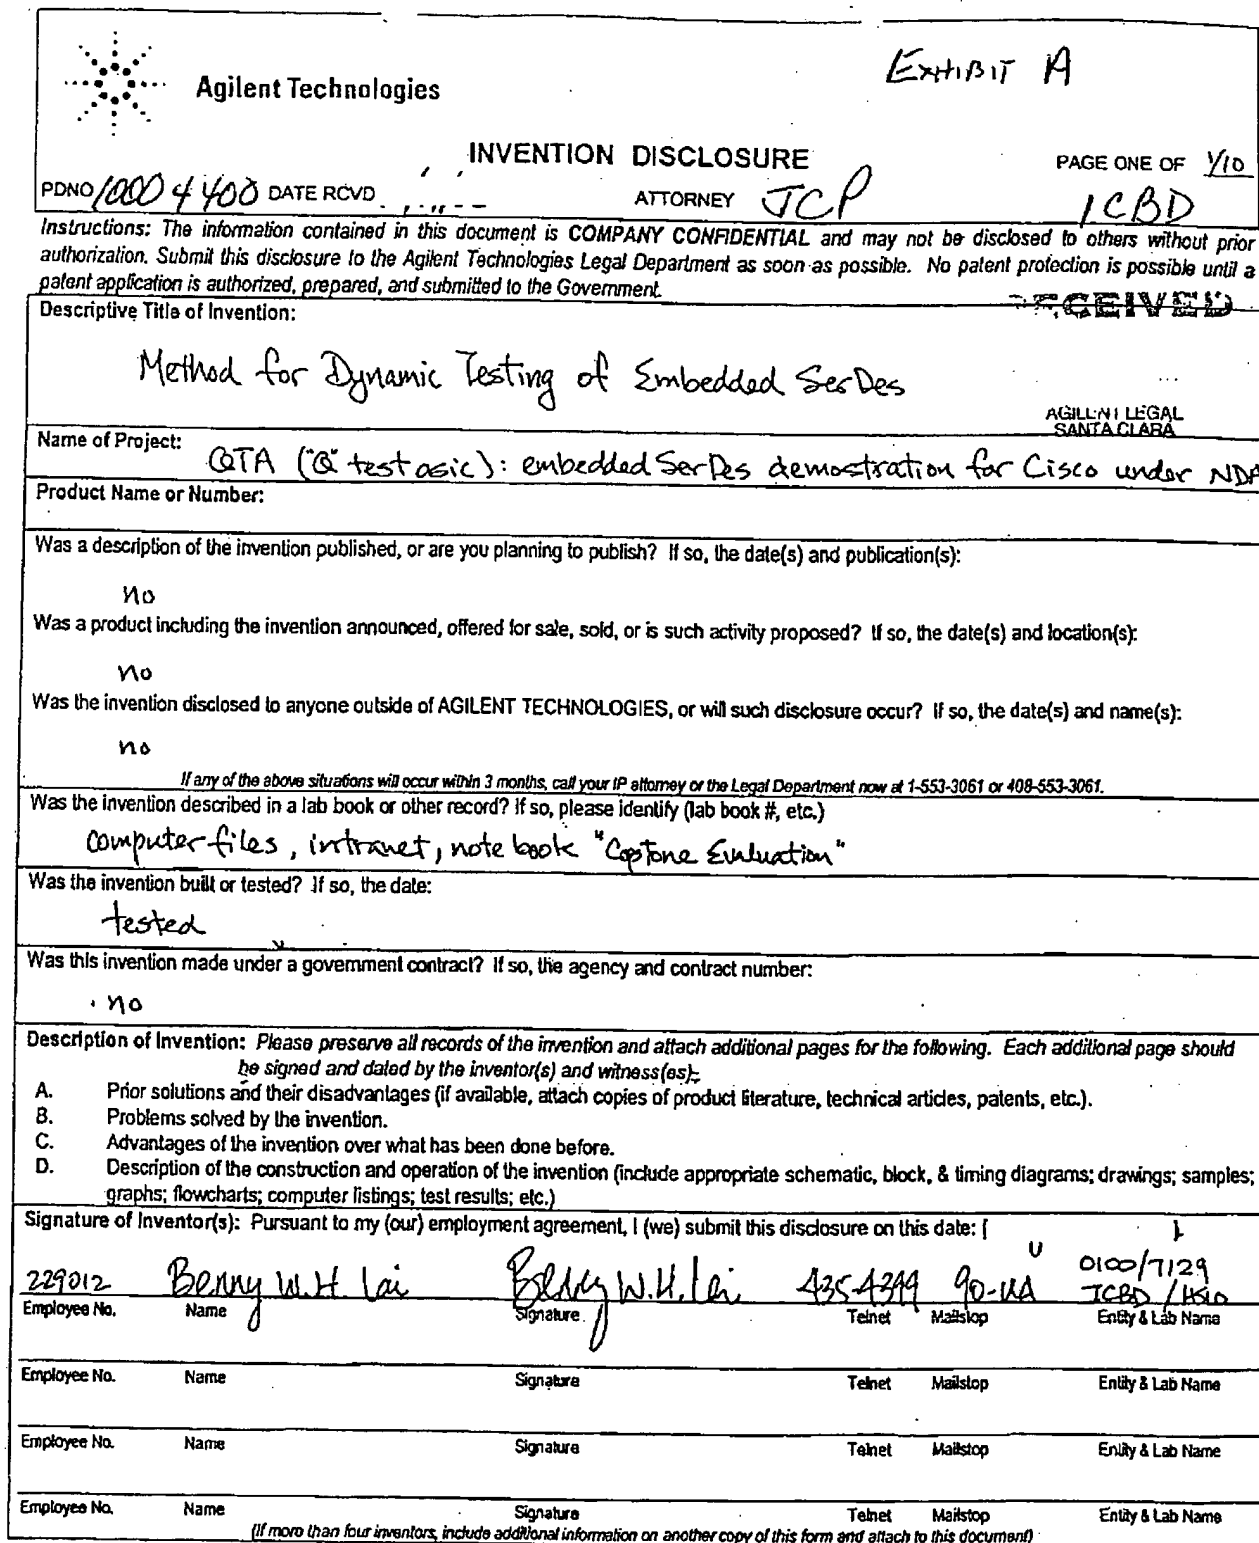 EXHIBIT A
Agilent Technologies
INVENTION DISCLOSURE
PAGE ONE OF 1/10
PDNO 10004400 DATE RCVD ATTORNEY JCP ICBD
Instructions: The information contained in this document is COMPANY CONFIDENTIAL and may not be disclosed to others without prior
authorization. Submit this disclosure to the Agilent Technologies Legal Department as soon as possible. No patent protection is possible until a
patent application is authorized, prepared, and submitted to the Government.
RECEIVED
Descriptive Title of Invention:
Method for Dynamic Testing of Embedded SerDes
AGILENT LEGAL
SANTA CLARA
Name of Project:
QTA ("Q" test asic): embedded SerDes demostration for Cisco under NDA
Product Name or Number:
Was a description of the invention published, or are you planning to publish? If so, the date(s) and publication(s):
no
Was a product including the invention announced, offered for sale, sold, or is such activity proposed? If so, the date(s) and location(s):
no
Was the invention disclosed to anyone outside of AGILENT TECHNOLOGIES, or will such disclosure occur? If so, the date(s) and name(s):
no
If any of the above situations will occur within 3 months, call your IP attorney or the Legal Department now at 1-553-3061 or 408-553-3061.
Was the invention described in a lab book or other record? If so, please identify (lab book #, etc.)
computer files, intranet, note book "Capstone Evaluation"
Was the invention built or tested? If so, the date:
tested
Was this invention made under a government contract? If so, the agency and contract number:
no
Description of Invention: Please preserve all records of the invention and attach additional pages for the following. Each additional page should
be signed and dated by the inventor(s) and witness(es).
A. Prior solutions and their disadvantages (if available, attach copies of product literature, technical articles, patents, etc.).
B. Problems solved by the invention.
C. Advantages of the invention over what has been done before.
D. Description of the construction and operation of the invention (include appropriate schematic, block, & timing diagrams; drawings; samples;
graphs; flowcharts; computer listings; test results; etc.)
Signature of Inventor(s): Pursuant to my (our) employment agreement, I (we) submit this disclosure on this date: [ ]
0100/7129
229012 Benny W.H. Lai Benny W.H. Lai 435-4344 90-UA ICBD / HSIO
Employee No. Name Signature Telnet Mailstop Entity & Lab Name
Employee No. Name Signature Telnet Mailstop Entity & Lab Name
Employee No. Name Signature Telnet Mailstop Entity & Lab Name
Employee No. Name Signature Telnet Mailstop Entity & Lab Name
(If more than four inventors, include additional information on another copy of this form and attach to this document)